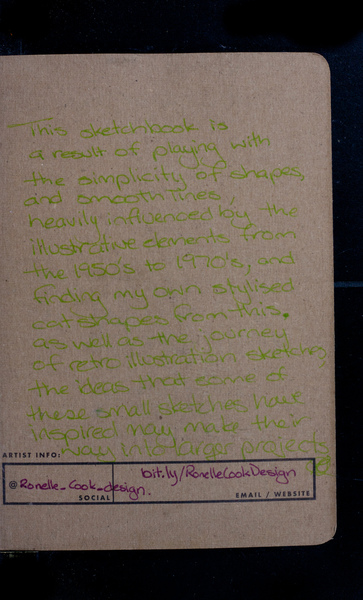 This sketchbook is
a result of playing with
the simplicity of shapes,
and smooth lines,
heavily influenced by the
illustrative elements from
the 1950's to 1970's, and
finding my own stylised
cat shapes from this.
as well as the journey
of retro illustration sketches,
the ideas that come of
these small sketches have
inspired may make their
way into larger projects
ARTIST INFO:
@Ronelle_Cook_design.
SOCIAL
bit.ly/RonelleCookDesign
EMAIL / WEBSITE